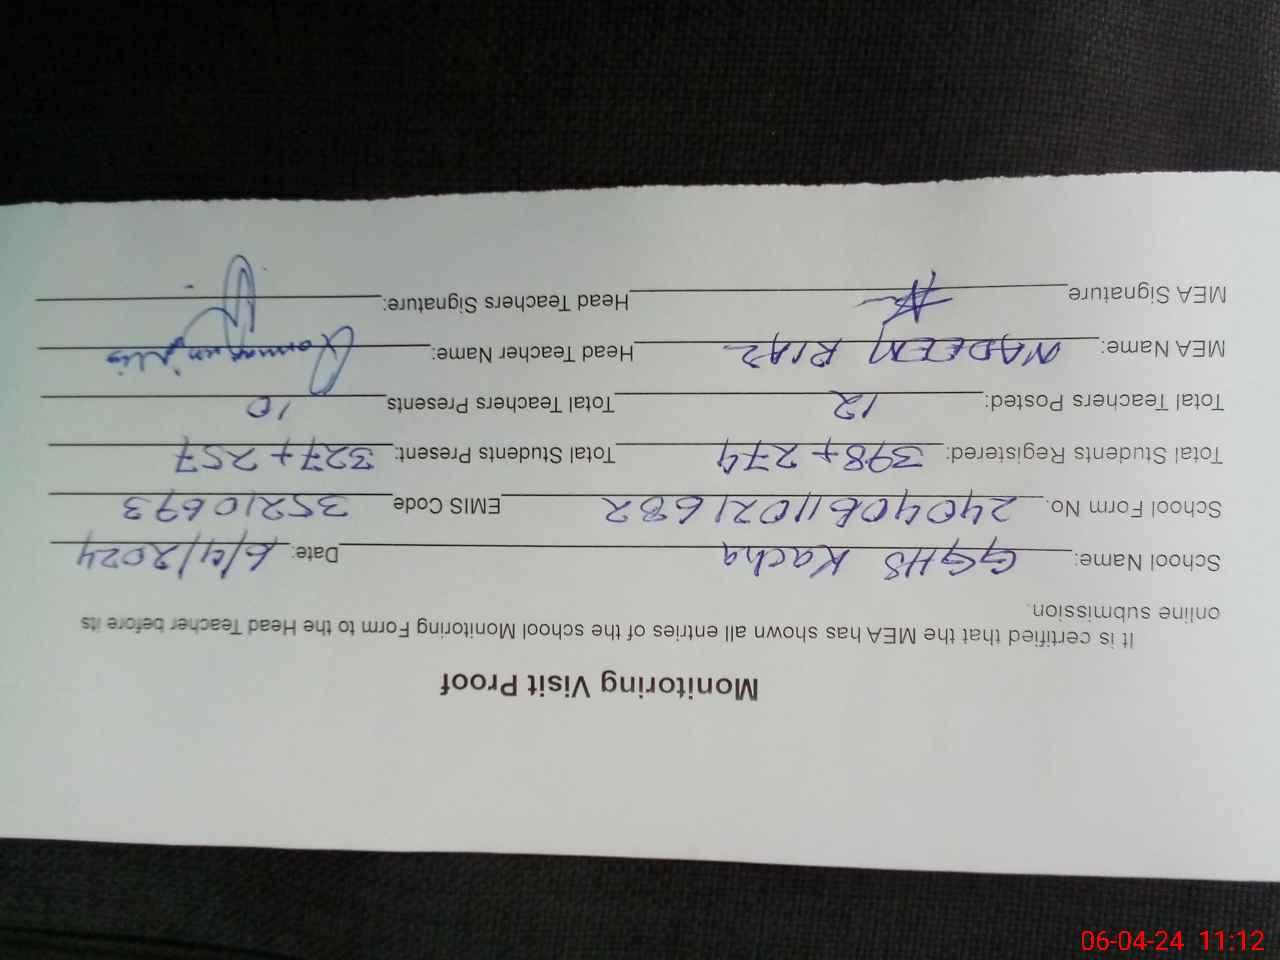 Monitoring Visit Proof
It is certified that the MEA has shown all entries of the school Monitoring Form to the Head Teacher before its
online submission.
School Name: GGHS Kacha Date: 6/4/2024
School Form No. 24040611021682 EMIS Code 35210693
Total Students Registered: 398+274 Total Students Present: 327+257
Total Teachers Posted: 12 Total Teachers Presents 10
MEA Name: NADEEM RIAZ Head Teacher Name:
MEA Signature Head Teachers Signature:
06-04-24 11:12